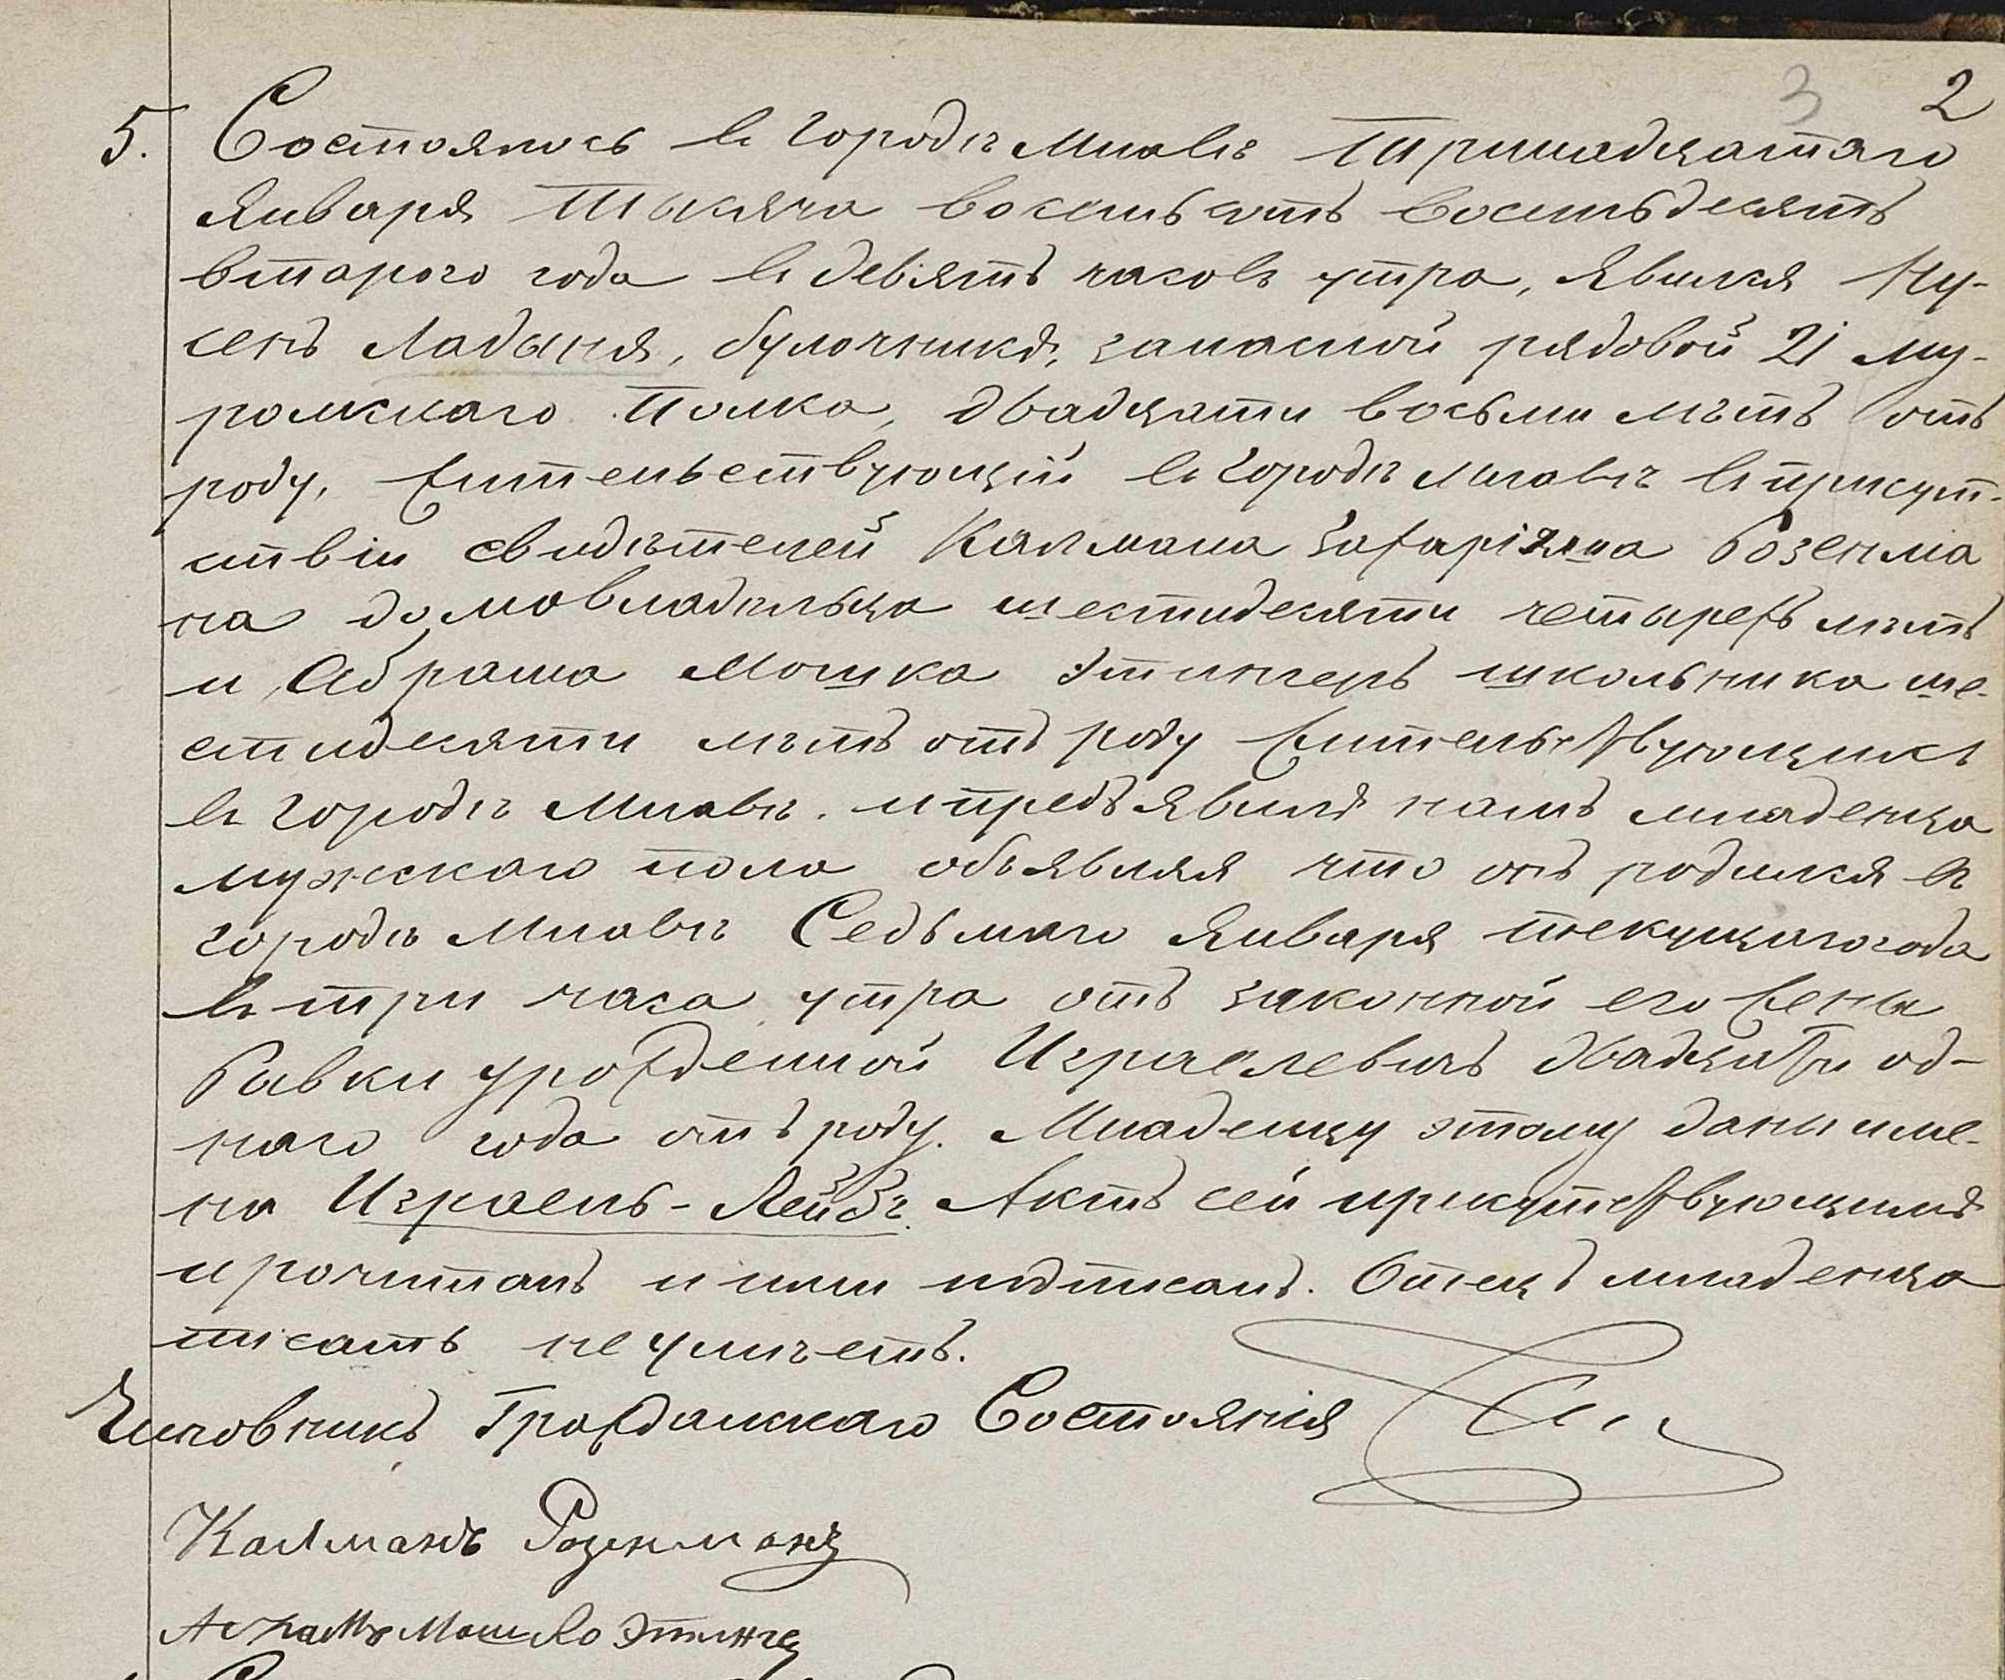 3 2
5. Состоялось въ городѣ Млавѣ Тринадцатаго
Января Тысяча восемьсотъ восемьдесятъ
втораго года въ девять часовъ утра, явился Ну-
сенъ Ладыня, булочникъ, запасной рядовой 21 Му-
ромскаго Полка, двадцати восьми лѣтъ отъ
роду, жительствующій въ городѣ Млавѣ въ присут-
ствіи свидѣтелей Калмана Розенма
на домовладѣльца шестидесяти четырехъ лѣтъ
и Абрама Мошка Этингеръ школьника ше-
стидесяти лѣтъ отъ роду жительствующихъ
въ городѣ Млавѣ. и предъявилъ намъ младенца
мужскаго пола объявляя что онъ родился въ
городѣ Млавѣ Седьмаго Января текущаго года
въ три часа утра отъ законной его жены
Ривки урожденной Израелевичъ двадцати од-
наго года отъ роду. Младенцу этому даны име-
на Израель-Лейбъ. Актъ сей присутствующимъ
прочитанъ и ими подписанъ. Отецъ младенца
писать не умѣетъ.
Чиновникъ Гражданскаго Состоянія
Калманъ Розенманъ
Абрамъ Мошко Этингер